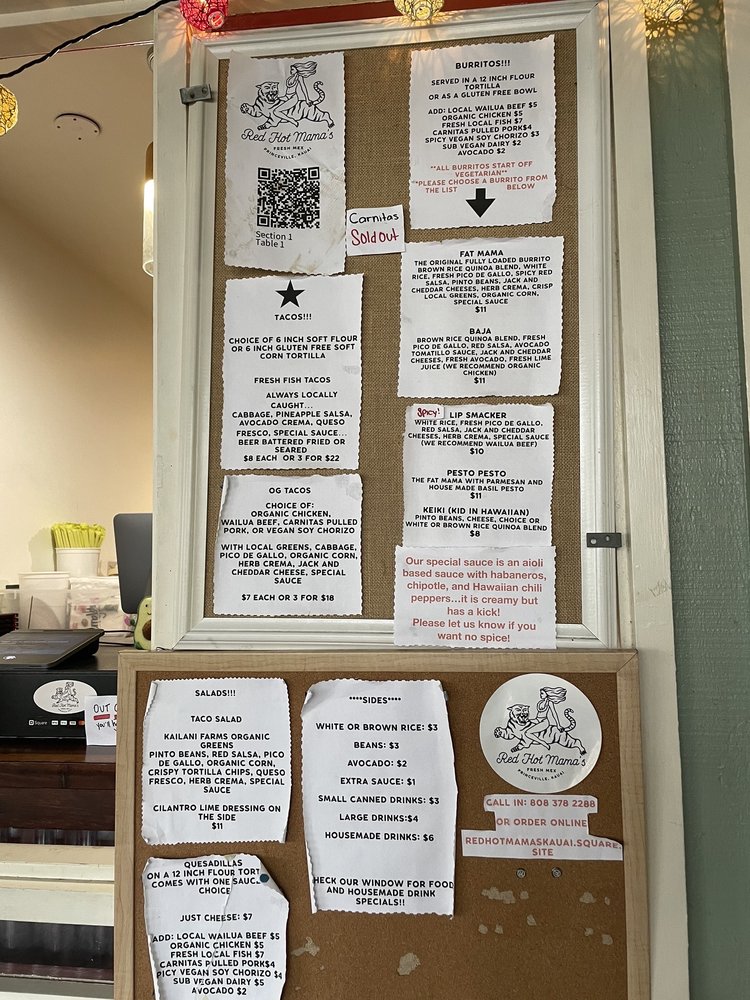 Red Hot Mama's
FRESH MEX
PRINCEVILLE, KAUAI
Section 1
Table 1
Carnitas
Sold out
BURRITOS!!!
SERVED IN A 12 INCH FLOUR
TORTILLA
OR AS A GLUTEN FREE BOWL
ADD: LOCAL WAILUA BEEF $5
ORGANIC CHICKEN $5
FRESH LOCAL FISH $7
CARNITAS PULLED PORK$4
SPICY VEGAN SOY CHORIZO $3
SUB VEGAN DAIRY $2
AVOCADO $2
**ALL BURRITOS START OFF
VEGETARIAN**
**PLEASE CHOOSE A BURRITO FROM
THE LIST BELOW
TACOS!!!
CHOICE OF 6 INCH SOFT FLOUR
OR 6 INCH GLUTEN FREE SOFT
CORN TORTILLA
FRESH FISH TACOS
ALWAYS LOCALLY
CAUGHT...
CABBAGE, PINEAPPLE SALSA,
AVOCADO CREMA, QUESO
FRESCO, SPECIAL SAUCE...
BEER BATTERED FRIED OR
SEARED
$8 EACH OR 3 FOR $22
OG TACOS
CHOICE OF:
ORGANIC CHICKEN,
WAILUA BEEF, CARNITAS PULLED
PORK, OR VEGAN SOY CHORIZO
WITH LOCAL GREENS, CABBAGE,
PICO DE GALLO, ORGANIC CORN,
HERB CREMA, JACK AND
CHEDDAR CHEESE, SPECIAL
SAUCE
$7 EACH OR 3 FOR $18
FAT MAMA
THE ORIGINAL FULLY LOADED BURRITO
BROWN RICE QUINOA BLEND, WHITE
RICE, FRESH PICO DE GALLO, SPICY RED
SALSA, PINTO BEANS, JACK AND
CHEDDAR CHEESES, HERB CREMA, CRISP
LOCAL GREENS, ORGANIC CORN,
SPECIAL SAUCE
$11
BAJA
BROWN RICE QUINOA BLEND, FRESH
PICO DE GALLO, RED SALSA, AVOCADO
TOMATILLO SAUCE, JACK AND CHEDDAR
CHEESES, FRESH AVOCADO, FRESH LIME
JUICE (WE RECOMMEND ORGANIC
CHICKEN)
$11
Spicy!
LIP SMACKER
WHITE RICE, FRESH PICO DE GALLO,
RED SALSA, JACK AND CHEDDAR
CHEESES, HERB CREMA, SPECIAL SAUCE
(WE RECOMMEND WAILUA BEEF)
$10
PESTO PESTO
THE FAT MAMA WITH PARMESAN AND
HOUSE MADE BASIL PESTO
$11
KEIKI (KID IN HAWAIIAN)
PINTO BEANS, CHEESE, CHOICE OR
WHITE OR BROWN RICE QUINOA BLEND
$8
Our special sauce is an aioli
based sauce with habaneros,
chipotle, and Hawaiian chili
peppers...it is creamy but
has a kick!
Please let us know if you
want no spice!
SALADS!!!
TACO SALAD
KAILANI FARMS ORGANIC
GREENS
PINTO BEANS, RED SALSA, PICO
DE GALLO, ORGANIC CORN,
CRISPY TORTILLA CHIPS, QUESO
FRESCO, HERB CREMA, SPECIAL
SAUCE
CILANTRO LIME DRESSING ON
THE SIDE
$11
QUESADILLAS
ON A 12 INCH FLOUR TORT
COMES WITH ONE SAUC
CHOICE
JUST CHEESE: $7
ADD: LOCAL WAILUA BEEF $5
ORGANIC CHICKEN $5
FRESH LOCAL FISH $7
CARNITAS PULLED PORK$4
SPICY VEGAN SOY CHORIZO $4
SUB VEGAN DAIRY $5
AVOCADO $2
****SIDES****
WHITE OR BROWN RICE: $3
BEANS: $3
AVOCADO: $2
EXTRA SAUCE: $1
SMALL CANNED DRINKS: $3
LARGE DRINKS:$4
HOUSEMADE DRINKS: $6
HECK OUR WINDOW FOR FOOD
AND HOUSEMADE DRINK
SPECIALS!!
Red Hot Mama's
FRESH MEX
PRINCEVILLE, KAUAI
CALL IN: 808 378 2288
OR ORDER ONLINE
REDHOTMAMASKAUAI.SQUARE.
SITE
Red Hot Mama's
Square
OUT